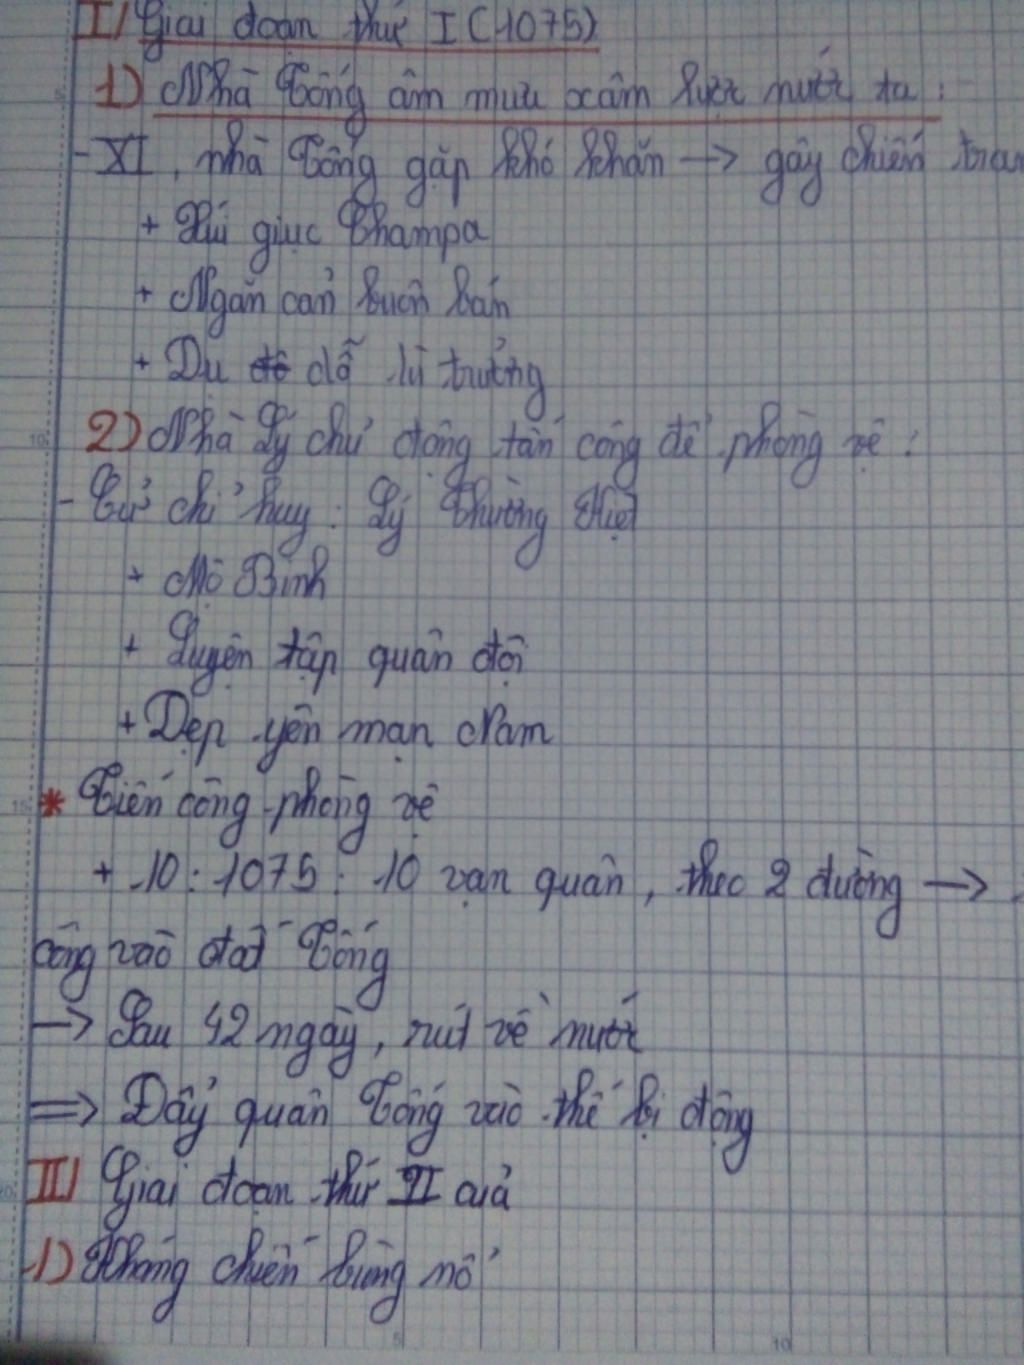 I/ Giai đoạn thứ I (1075)
1) Nhà Tống âm mưu xâm lược nước ta :
- XI, nhà Tống gặp khó khăn → gây chiến tran
+ Xúi giục Champa
+ Ngăn cản buôn bán
+ Dụ dỗ lì trưởng
2) Nhà Lý chủ động tấn công để phòng vệ :
- Cử chỉ huy : Lý Thường Kiệt
+ Mộ Binh
+ Luyện tập quân đội
+ Dẹp yên mạn Nam
* Tiến công phòng vệ
+ 10 : 1075 : 10 vạn quân, theo 2 đường →
công vào đất Tống
→ Sau 42 ngày, rút về nước
⇒ Đẩy quân Tống vào thế bị động
II/ Giai đoạn thứ II của
1) Kháng chiến bùng nổ